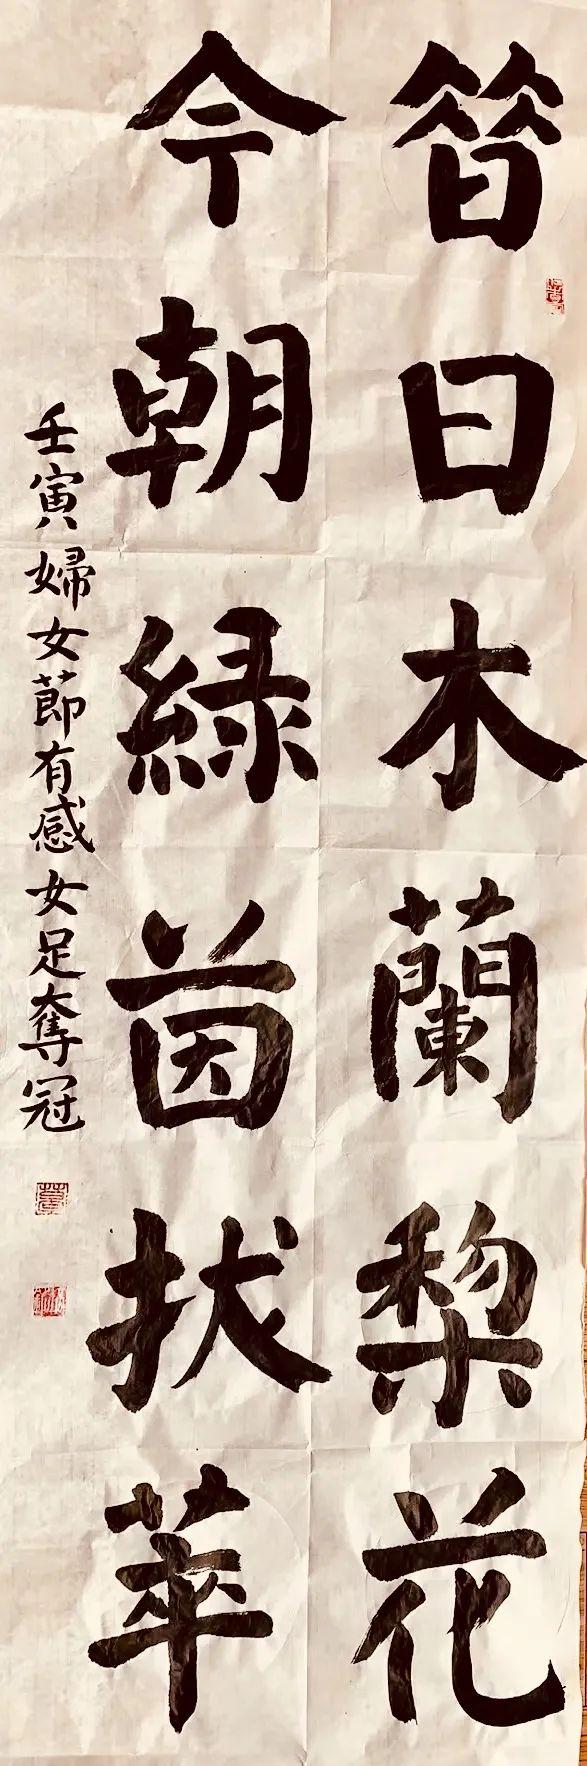 昔日木蘭梨花
今朝緑茵拔萃
壬寅婦女節有感女足奪冠